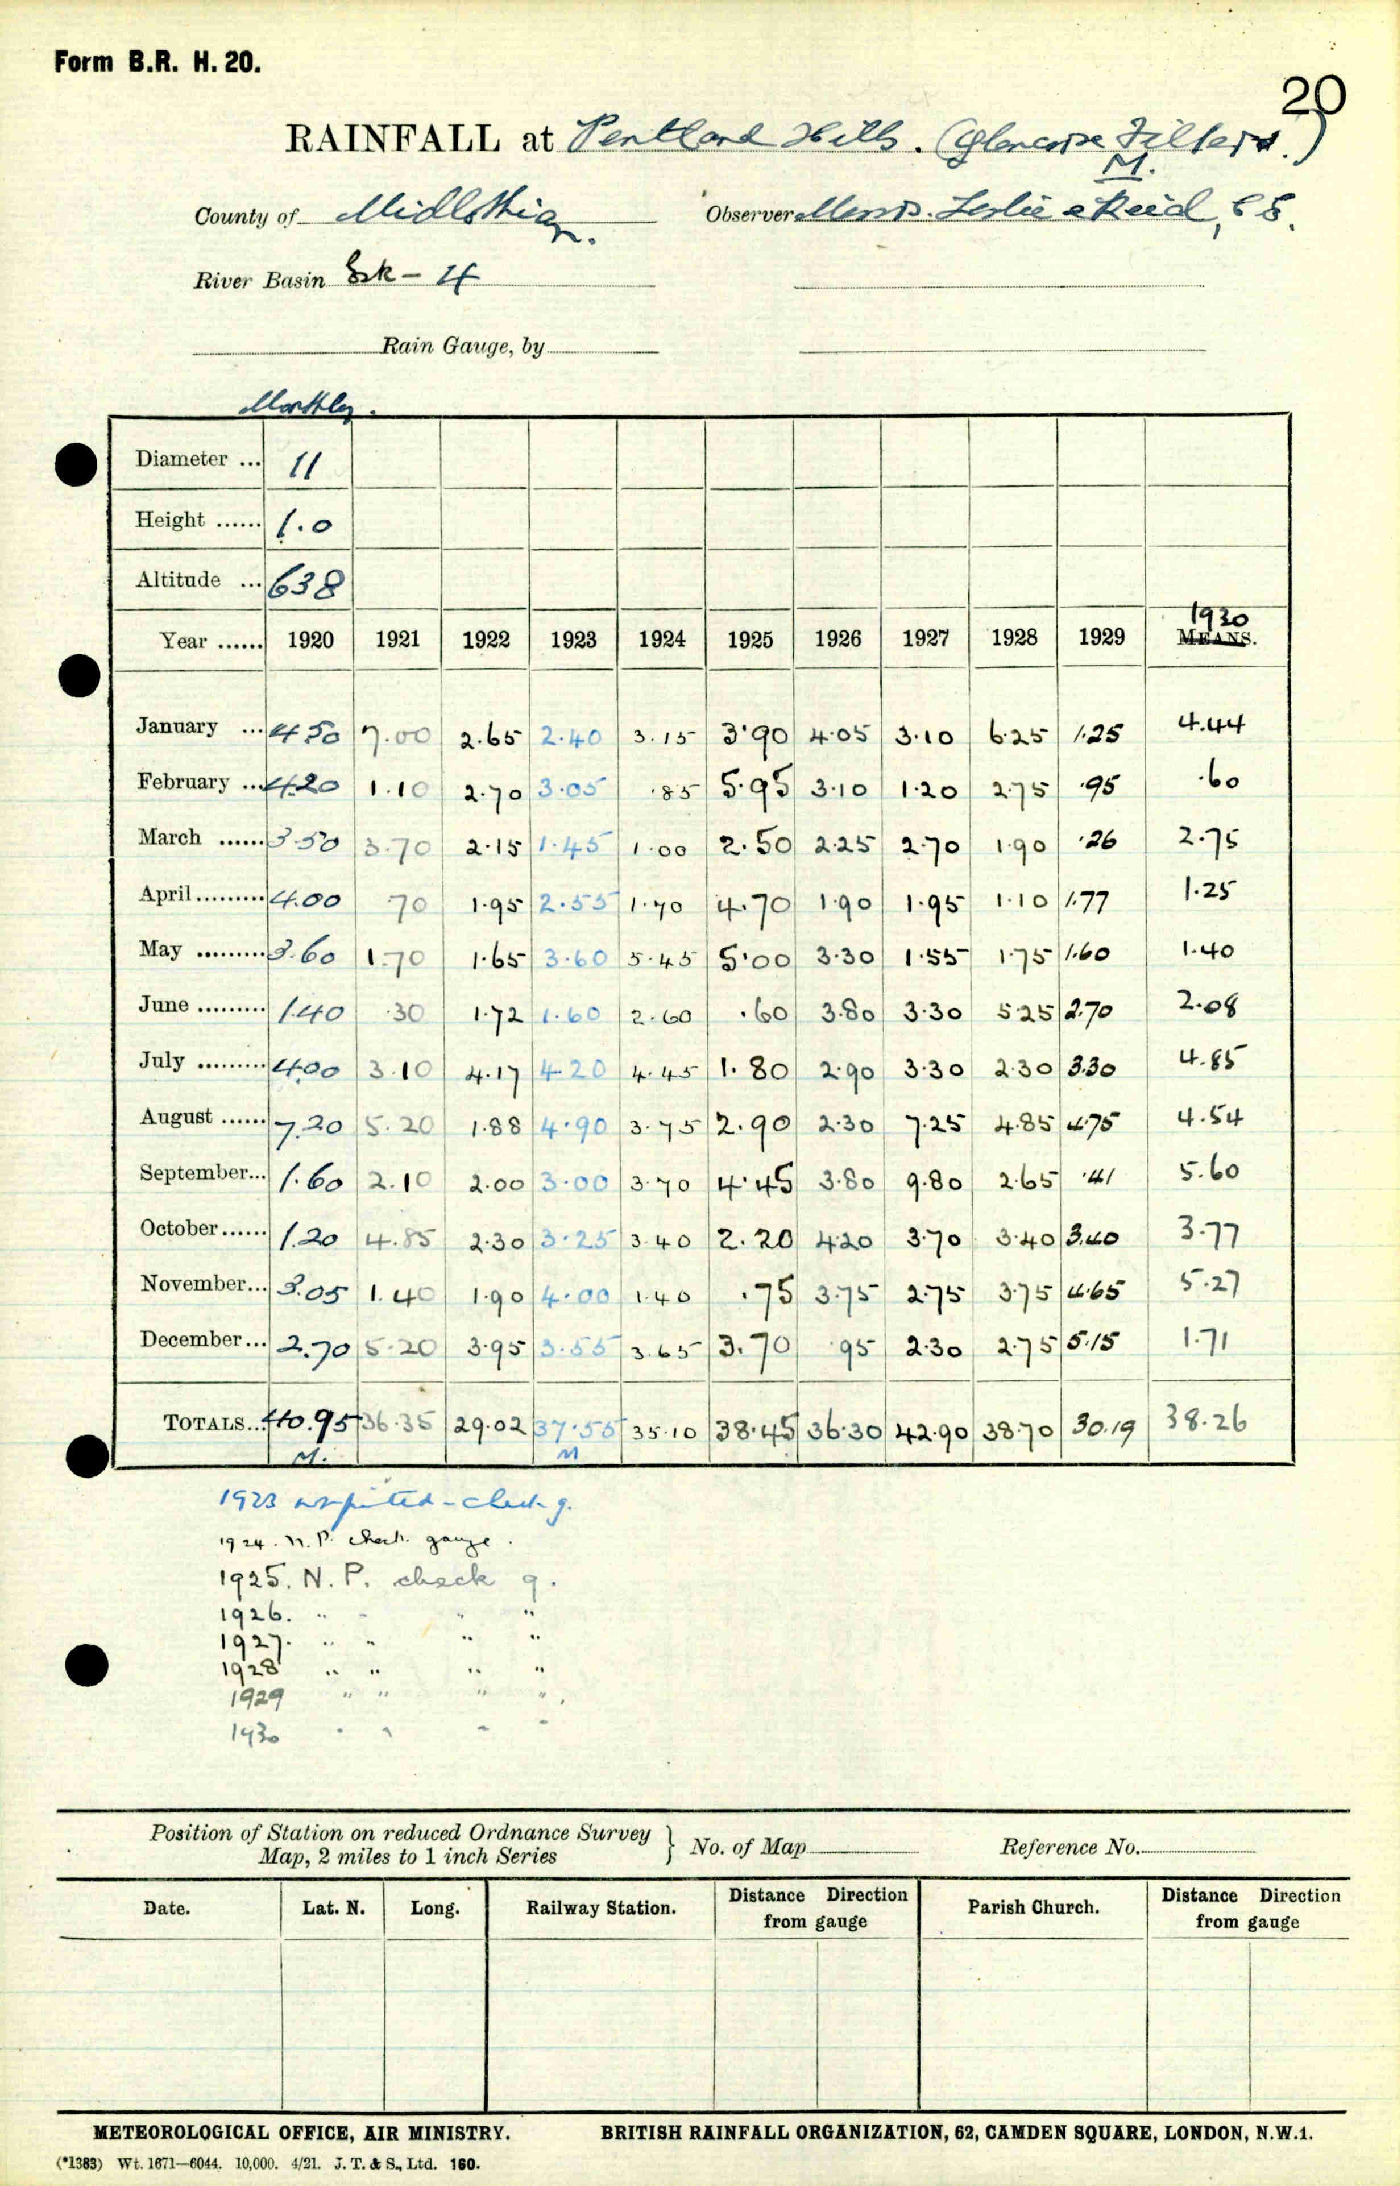 Form B.R. H. 20.
20
RAINFALL at Pentland Hills. (Glencorse Filters.)
M.
County of Midlothian. Observer Messrs. Leslie & Reid, C E.
River Basin Esk - 4
Rain Gauge, by
Monthly.
Diameter ... 11
Height ...... 1.0
Altitude ... 638
1930
Year ...... 1920 1921 1922 1923 1924 1925 1926 1927 1928 1929 MEANS.
January ... 4.50 7.00 2.65 2.40 3.15 3.90 4.05 3.10 6.25 1.25 4.44
February ... 4.20 1.10 2.70 3.05 .85 5.95 3.10 1.20 2.75 .95 .60
March ...... 3.50 3.70 2.15 1.45 1.00 2.50 2.25 2.70 1.90 .26 2.75
April ......... 4.00 .70 1.95 2.55 1.70 4.70 1.90 1.95 1.10 1.77 1.25
May ......... 3.60 1.70 1.65 3.60 5.45 5.00 3.30 1.55 1.75 1.60 1.40
June ......... 1.40 .30 1.72 1.60 2.60 .60 3.80 3.30 5.25 2.70 2.08
July ......... 4.00 3.10 4.17 4.20 4.45 1.80 2.90 3.30 2.30 3.30 4.85
August ...... 7.20 5.20 1.88 4.90 3.75 2.90 2.30 7.25 4.85 4.75 4.54
September... 1.60 2.10 2.00 3.00 3.70 4.45 3.80 9.80 2.65 .41 5.60
October...... 1.20 4.85 2.30 3.25 3.40 2.20 4.20 3.70 3.40 3.40 3.77
November... 3.05 1.40 1.90 4.00 1.40 .75 3.75 2.75 3.75 4.65 5.27
December... 2.70 5.20 3.95 3.55 3.65 3.70 .95 2.30 2.75 5.15 1.71
TOTALS... 40.95 36.35 29.02 37.55 35.10 38.45 36.30 42.90 38.70 30.19 38.26
M. M
1923 not printed - check g.
1924. N.P. check gauge.
1925. N. P. check g.
1926. " " " "
1927. " " " "
1928 " " " "
1929 " " " "
1930 " " " "
Position of Station on reduced Ordnance Survey
Map, 2 miles to 1 inch Series } No. of Map Reference No.
Date. Lat. N. Long. Railway Station. Distance Direction from gauge Parish Church. Distance Direction from gauge
METEOROLOGICAL OFFICE, AIR MINISTRY. BRITISH RAINFALL ORGANIZATION, 62, CAMDEN SQUARE, LONDON, N.W.1.
(*1383) Wt. 1671—6044. 10,000. 4/21. J. T. & S., Ltd. 160.